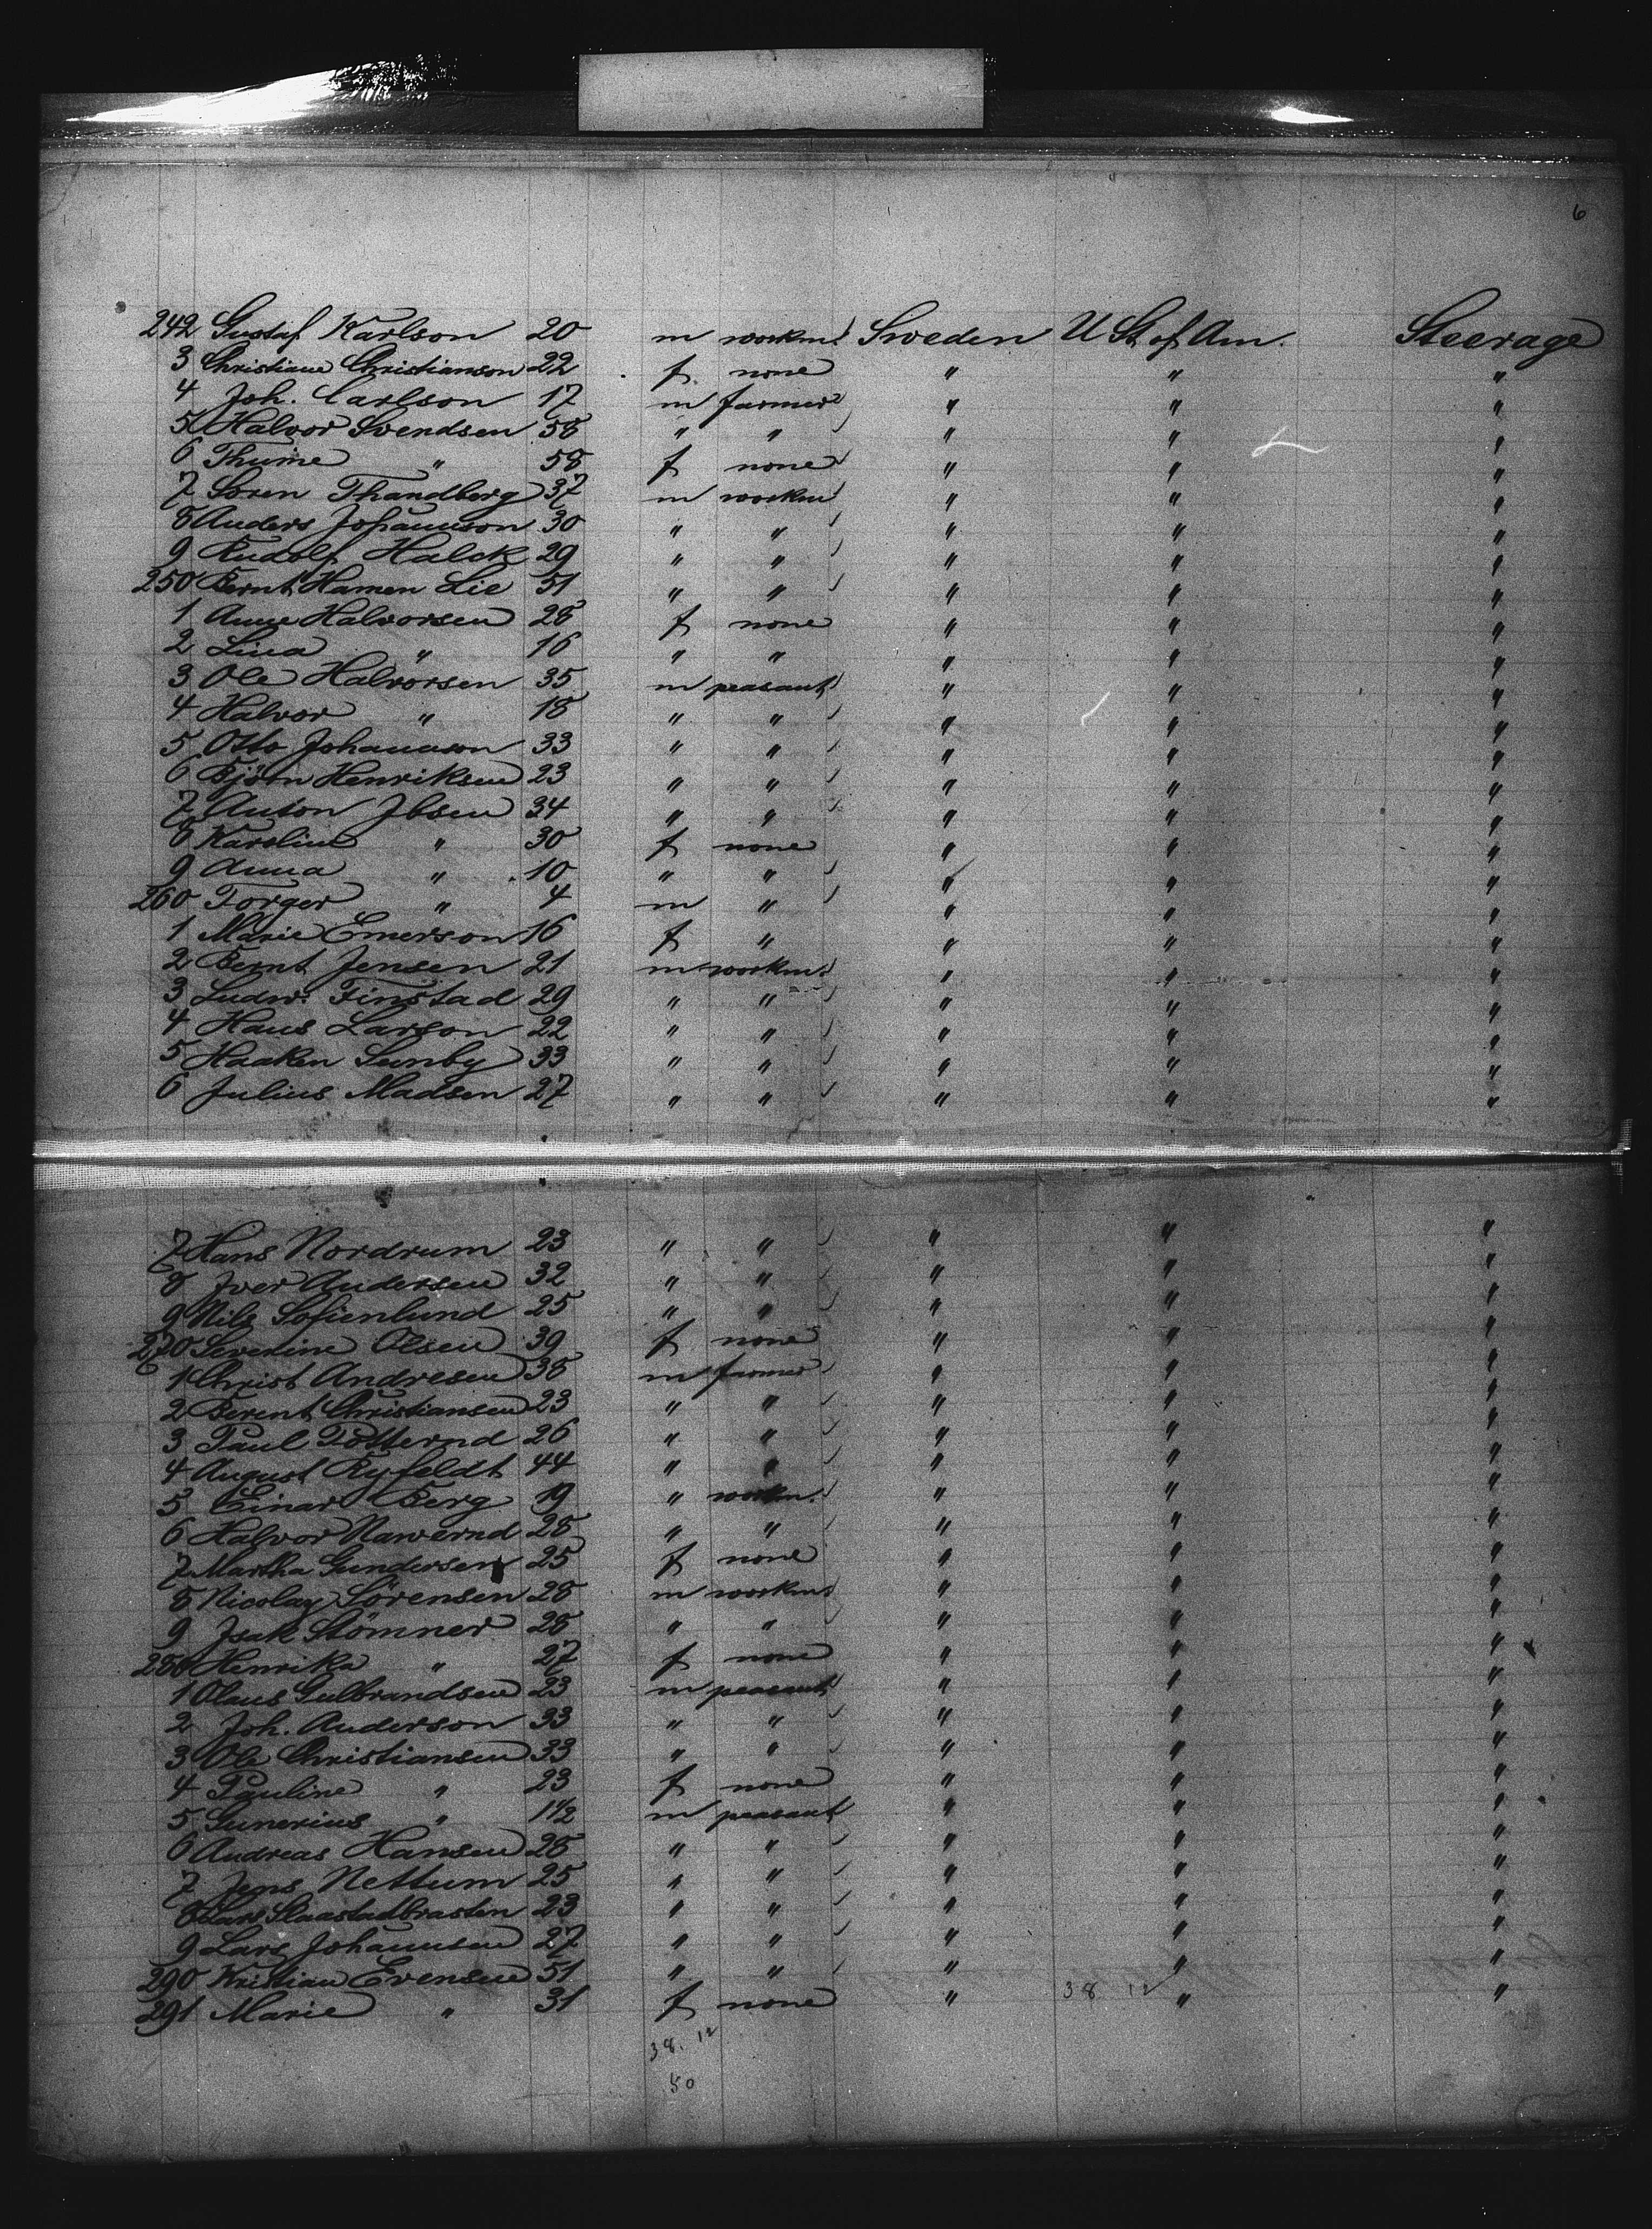 6
242 Gustaf Karlson 20 m workm. Sweden U St. of Am. Steerage
3 Christiane Christianson 22 f none " " "
4 Joh. Carlson 17 m farmer " " "
5 Halvor Svendsen 58 " " " " "
6 Thurine " 58 f none " " "
7 Soren Thandberg 37 m workm " " "
8 Anders Johannson 30 " " " " "
9 Rudolf Halck 29 " " " " "
250 Bernt Hamen Lie 51 " " " " "
1 Anne Halvorsen 28 f none " " "
2 Lina " 16 " " " " "
3 Ole Halvorsen 35 m peasant " " "
4 Halvor " 18 " " " " "
5 Otto Johannson 33 " " " " "
6 Björn Henriksen 23 " " " " "
7 Anton Jbsen 34 " " " " "
8 Karoline " 30 f none " " "
9 Anna " 10 " " " " "
260 Torger " 4 m " " " "
1 Marie Emerson 16 f " " " "
2 Bernt Jensen 21 m workm. " " "
3 Ludw. Finstad 29 " " " " "
4 Hans Larson 22 " " " " "
5 Haaken Sunby 33 " " " " "
6 Julius Madsen 27 " " " " "
7 Hans Nordrum 23 " " " " "
8 Iver Andersen 32 " " " " "
9 Nils Sofienlund 25 " " " " "
270 Severine Olsen 39 f none " " "
1 Christ Andresen 38 m farmer " " "
2 Berent Christiansen 23 " " " " "
3 Paul Totternd 26 " " " " "
4 August Ryfeldt 44 " " " " "
5 Einar Berg 19 " workm. " " "
6 Halvor Nawernd 28 " " " " "
7 Martha Gundersen 25 f none " " "
8 Nicolay Sörensen 28 m workm. " " "
9 Isak Stömner 28 " " " " "
280 Henrika " 27 f none " " "
1 Olaus Gulbrandsen 23 m peasant " " "
2 Joh. Anderson 33 " " " " "
3 Ole Christiansen 33 " " " " "
4 Pauline " 23 f none " " "
5 Gunerius " 1 1/2 m peasant " " "
6 Andreas Hansen 28 " " " " "
7 Jens Nettum 25 " " " " "
8 Lars Slaastadbrasten 23 " " " " "
9 Lars Johannsen 27 " " " " "
290 Kristian Evensen 51 " " " " "
291 Marie " 31 f none " 38 12 " "
38. 12
50